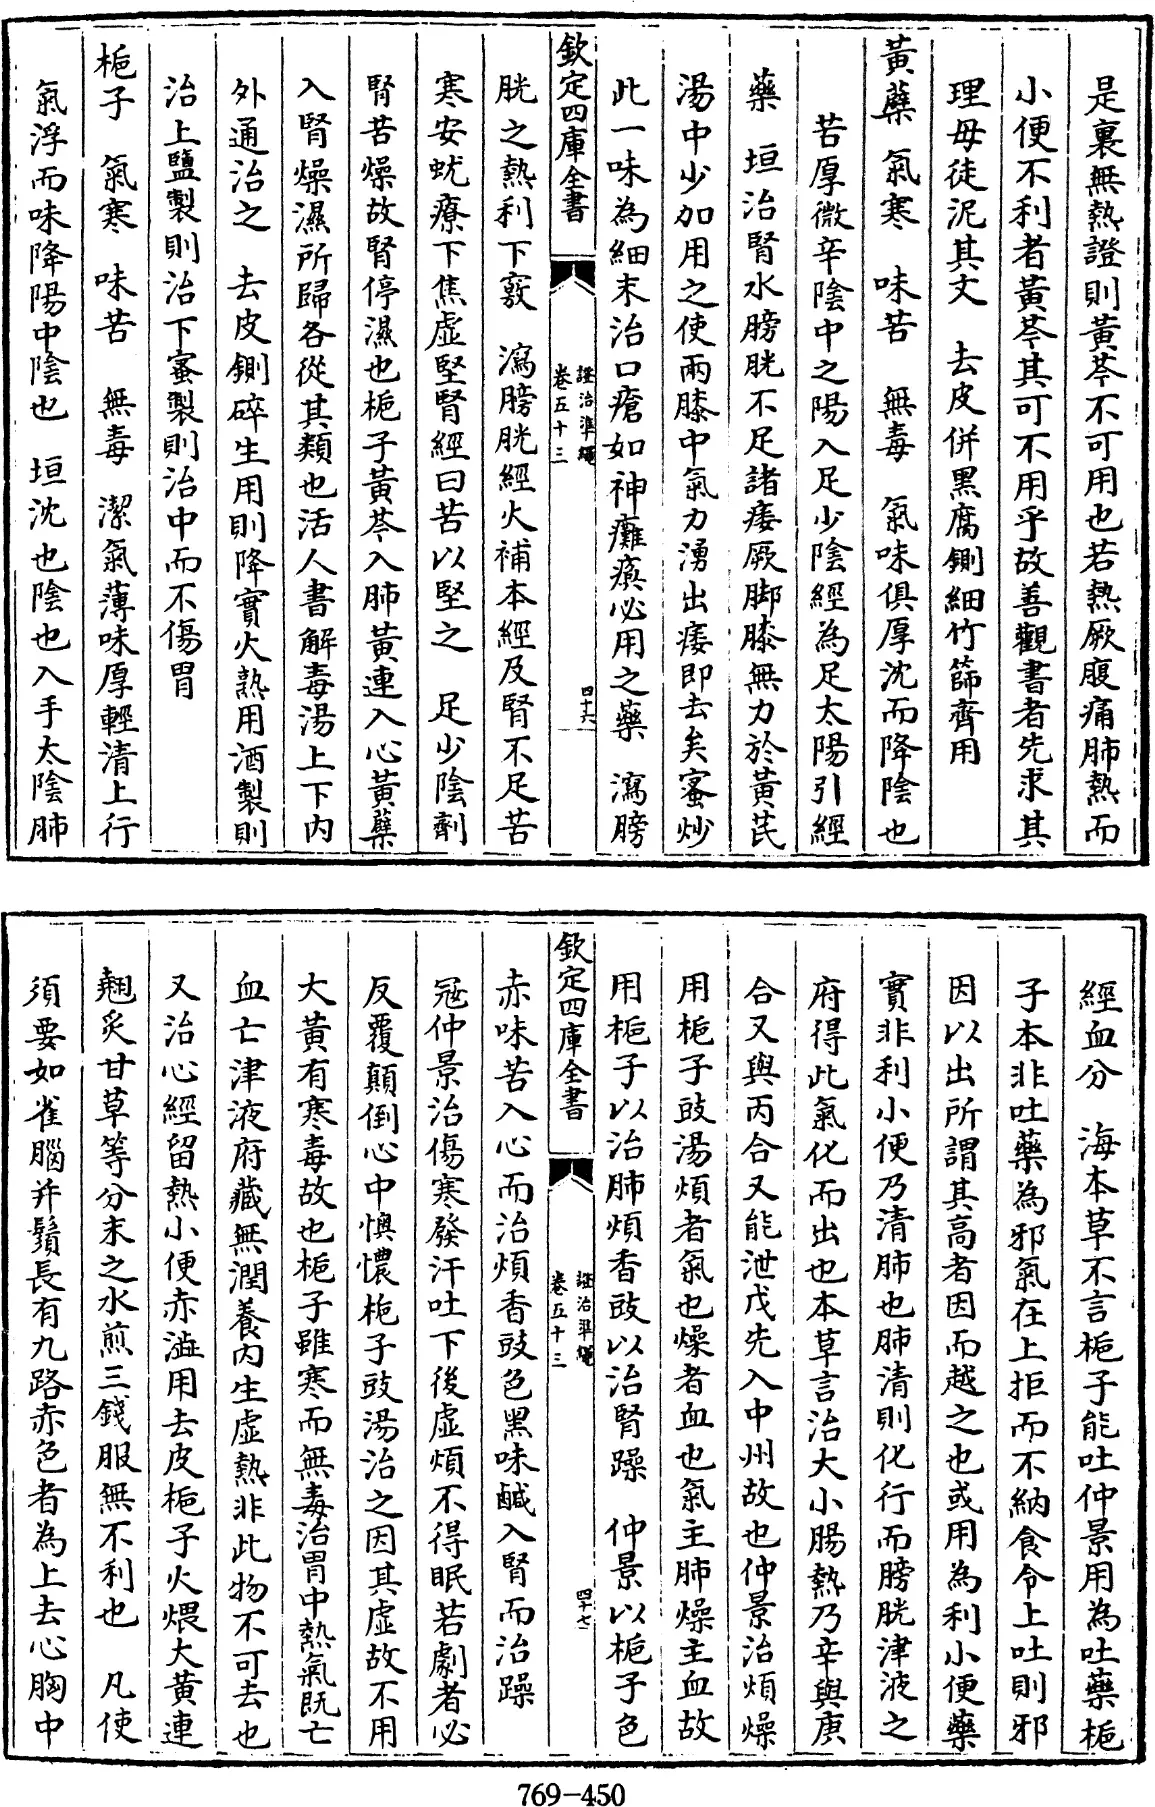 是裏無熱證則黃芩不可用也若熱厥腹痛肺熱而
小便不利者黃芩其可不用乎故善觀書者先求其
理毋徒泥其文　去皮併黑腐鍘細竹篩齊用
黃蘗　氣寒　味苦　無毒　氣味俱厚沈而降陰也
苦厚微辛陰中之陽入足少陰經為足太陽引經
藥　垣治腎水膀胱不足諸痿厥脚膝無力於黃芪
湯中少加用之使兩膝中氣力湧出痿即去矣蜜炒
此一味為細末治口瘡如神癱瘓必用之藥　瀉膀
欽定四庫全書
證治準繩
卷五十三
四十六
胱之熱利下竅　瀉膀胱經火補本經及腎不足苦
寒安蚘療下焦虛堅腎經曰苦以堅之　足少陰劑
腎苦燥故腎停濕也梔子黃芩入肺黃連入心黃蘗
入腎燥濕所歸各從其類也活人書解毒湯上下內
外通治之　去皮鍘碎生用則降實火熟用酒製則
治上鹽製則治下蜜製則治中而不傷胃
梔子　氣寒　味苦　無毒　潔氣薄味厚輕清上行
氣浮而味降陽中陰也　垣沈也陰也入手太陰肺
經血分　海本草不言梔子能吐仲景用為吐藥梔
子本非吐藥為邪氣在上拒而不納食令上吐則邪
因以出所謂其高者因而越之也或用為利小便藥
實非利小便乃清肺也肺清則化行而膀胱津液之
府得此氣化而出也本草言治大小腸熱乃辛與庚
合又與丙合又能泄戊先入中州故也仲景治煩燥
用梔子豉湯煩者氣也燥者血也氣主肺燥主血故
用梔子以治肺煩香豉以治腎躁　仲景以梔子色
欽定四庫全書
證治準繩
卷五十三
四十七
赤味苦入心而治煩香豉色黑味鹹入腎而治躁
冦仲景治傷寒發汗吐下後虛煩不得眠若劇者必
反覆顛倒心中懊憹梔子豉湯治之因其虛故不用
大黃有寒毒故也梔子雖寒而無毒治胃中熱氣既亡
血亡津液府藏無潤養內生虛熱非此物不可去也
又治心經留熱小便赤澁用去皮梔子火煨大黃連
翹炙甘草等分末之水煎三錢服無不利也　凡使
須要如雀腦并鬚長有九路赤色者為上去心胸中
769-450